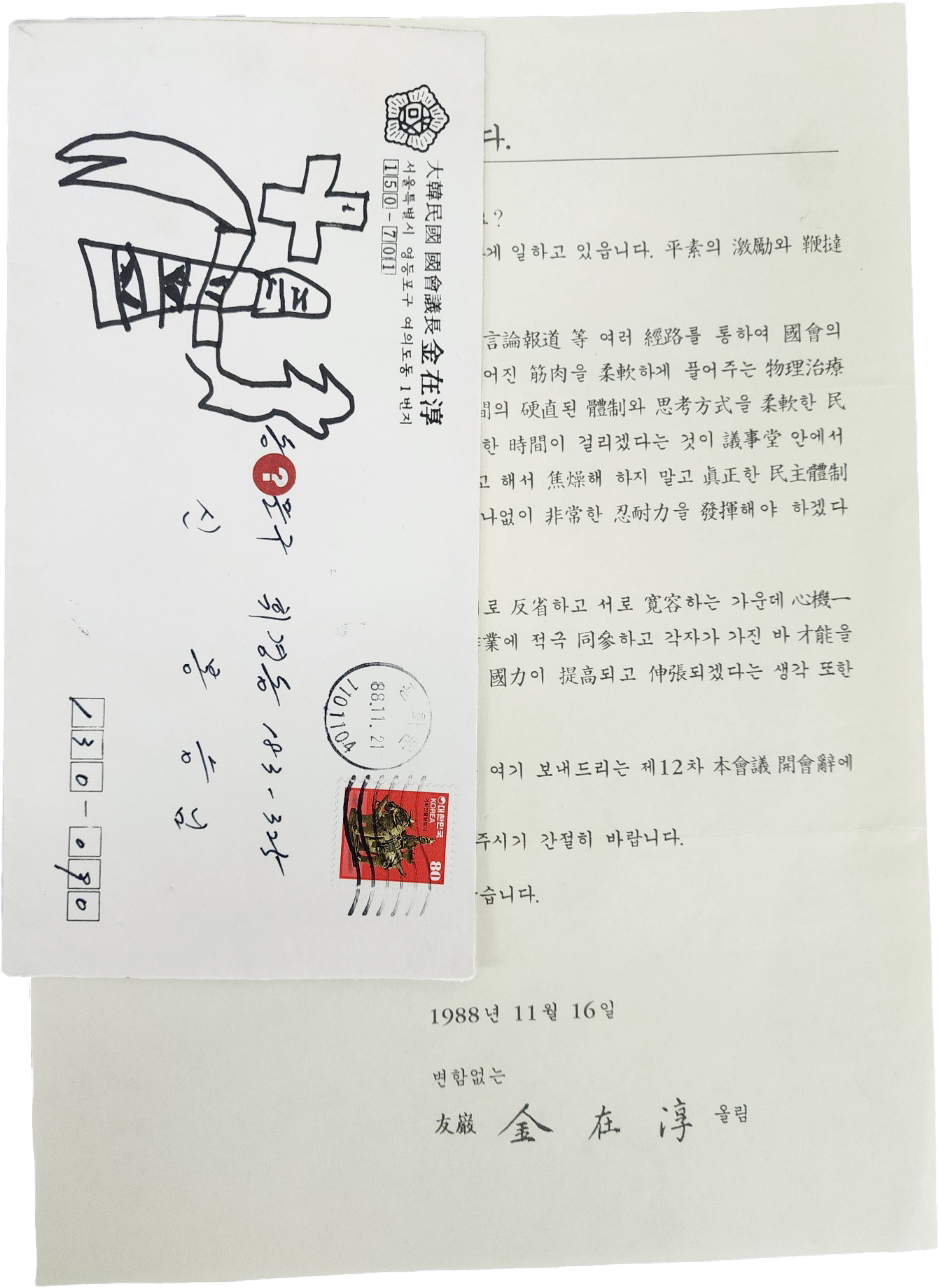 大韓民國 國會議長 金在淳
서울특별시 영등포구 여의도동 1번지
150-701
동?문구 휘경동
130-090
88.11.21
대한민국
KOREA
80
다.
요?
게 일하고 있읍니다. 平素의 激勵와 鞭撻
言論報道 等 여러 經路를 통하여 國會의
어진 筋肉을 柔軟하게 풀어주는 物理治療
間의 硬直된 體制와 思考方式을 柔軟한 民
한 時間이 걸리겠다는 것이 議事堂 안에서
고 해서 焦燥해 하지 말고 眞正한 民主體制
나없이 非常한 忍耐力을 發揮해야 하겠다
로 反省하고 서로 寬容하는 가운데 心機一
業에 적극 同參하고 각자가 가진 바 才能을
國力이 提高되고 伸張되겠다는 생각 또한
여기 보내드리는 제12차 本會議 開會辭에
주시기 간절히 바랍니다.
습니다.
1988년 11월 16일
변함없는
友巖 金在淳 올림